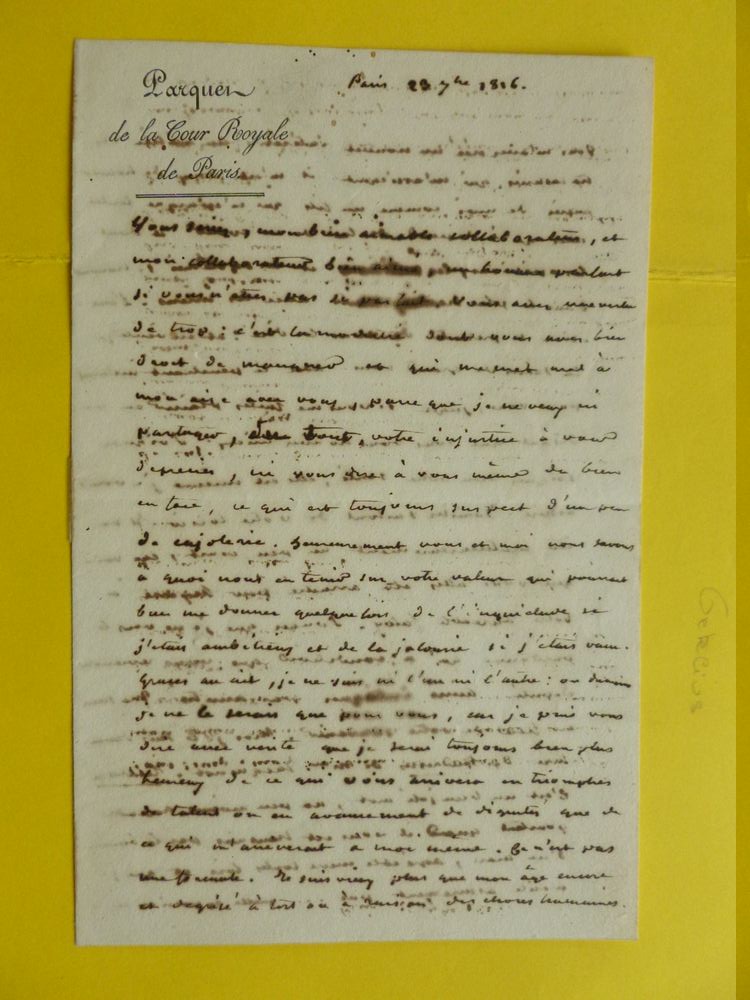 Parquet
de la Cour Royale
de Paris
Paris 23 7bre 1816.
Vous seriez mon bien aimable collaborateur, et
mon collaborateur bien aimé
si vous n'aviez pas Vous avez une vertu
de trop : c'est la modestie dont vous avez bien
droit de manquer et qui me met mal à
mon aise avec vous, parce que je ne veux ni
partager, votre injustice à vous
déprécier, ni vous dire à vous même du bien
en face, ce qui est toujours suspect d'un peu
de cajolerie. heureusement vous et moi nous savons
à quoi nous en tenir sur votre valeur qui pourrait
bien me donner quelquefois de l'inquiétude si
j'étais ambitieux et de la jalousie si j'étais vain.
Graces au ciel, je ne suis ni l'un ni l'autre : ou du moins
je ne le serais que pour vous, car je puis vous
dire avec vérité que je serai toujours bien plus
heureux de ce qui vous arrivera en triomphes
de talent ou en avancement de dignités que de
ce qui m'arriverait à moi même. Ce n'est pas
une formule. Je suis vieux plus que mon âge encore
et dégoûté à tort ou à raison des choses humaines.